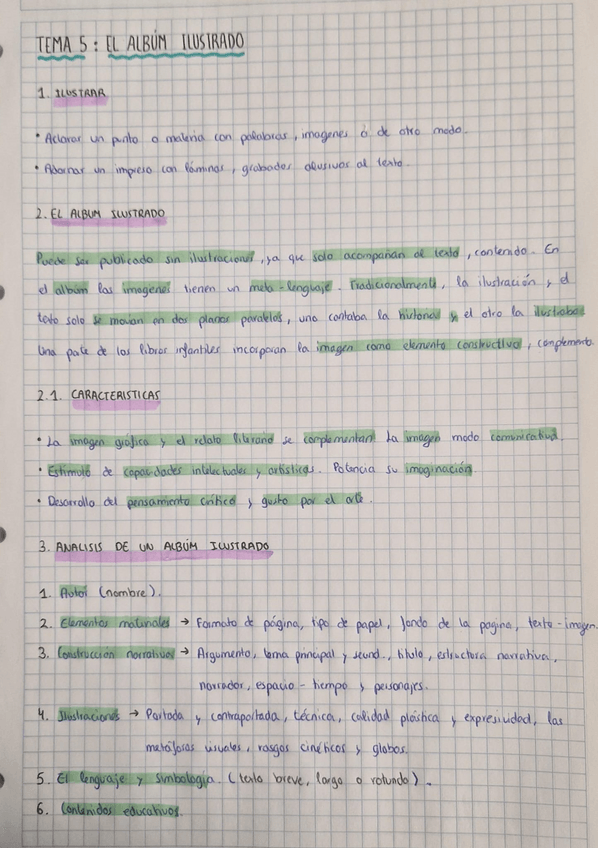 TEMA 5: EL ALBÚM ILUSTRADO
1. ILUSTRAR
• Aclarar un punto o materia con palabras, imagenes ó de otro modo.
• Adornar un impreso con láminas, grabados alusivos al texto.
2. EL ALBUM ILUSTRADO
Puede ser publicado sin ilustraciones, ya que solo acompañan al texto, contenido. En
el album las imagenes tienen un meta-lenguaje. Tradicionalmente, la ilustración y el
texto solo se movian en dos planos paralelos, uno contaba la historia y el otro la ilustraba
Una parte de los libros infantiles incorporan la imagen como elemento constructivo, complemento.
2.1. CARACTERISTICAS
• La imagen gráfica y el relato literario se complementan la imagen modo comunicativa.
• Estimulo de capacidades intelectuales y artísticas. Potencia su imaginación
• Desarrollo del pensamiento critico y gusto por el arte.
3. ANALISIS DE UN ALBÚM ILUSTRADO
1. Autor (nombre).
2. Elementos materiales → Formato de página, tipo de papel, fondo de la pagina, texto-imagen.
3. Construcción narrativa → Argumento, tema principal y secund., titulo, estructura narrativa,
narrador, espacio-tiempo y personajes.
4. Ilustraciones → Portada y contraportada, técnica, calidad plástica y expresividad, las
metáforas visuales, rasgos cinéticos y globos.
5. El lenguaje y simbología. (texto breve, largo o rotundo).
6. Contenidos educativos.